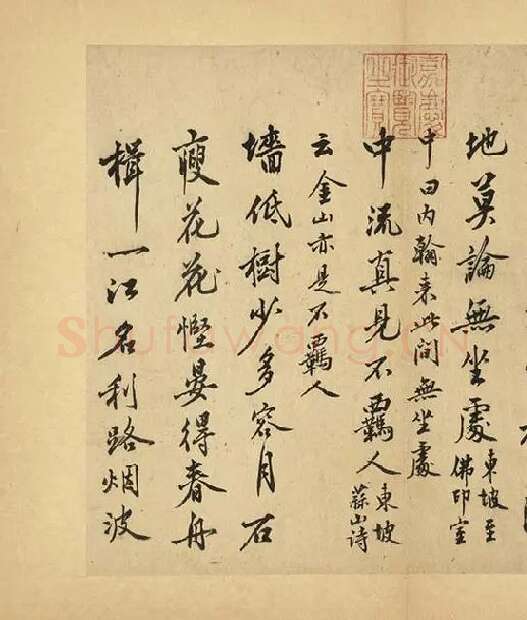 地莫論無坐處
東坡至
佛印室
中曰內翰来此间無坐處
中流真見不羈人
東坡
蒜山诗
云金山亦是不羈人
墻低樹少多容月石
瘦花花慳晏得春舟
楫一江名利路烟波
嘉慶御覽之寶
Shufawang.CN